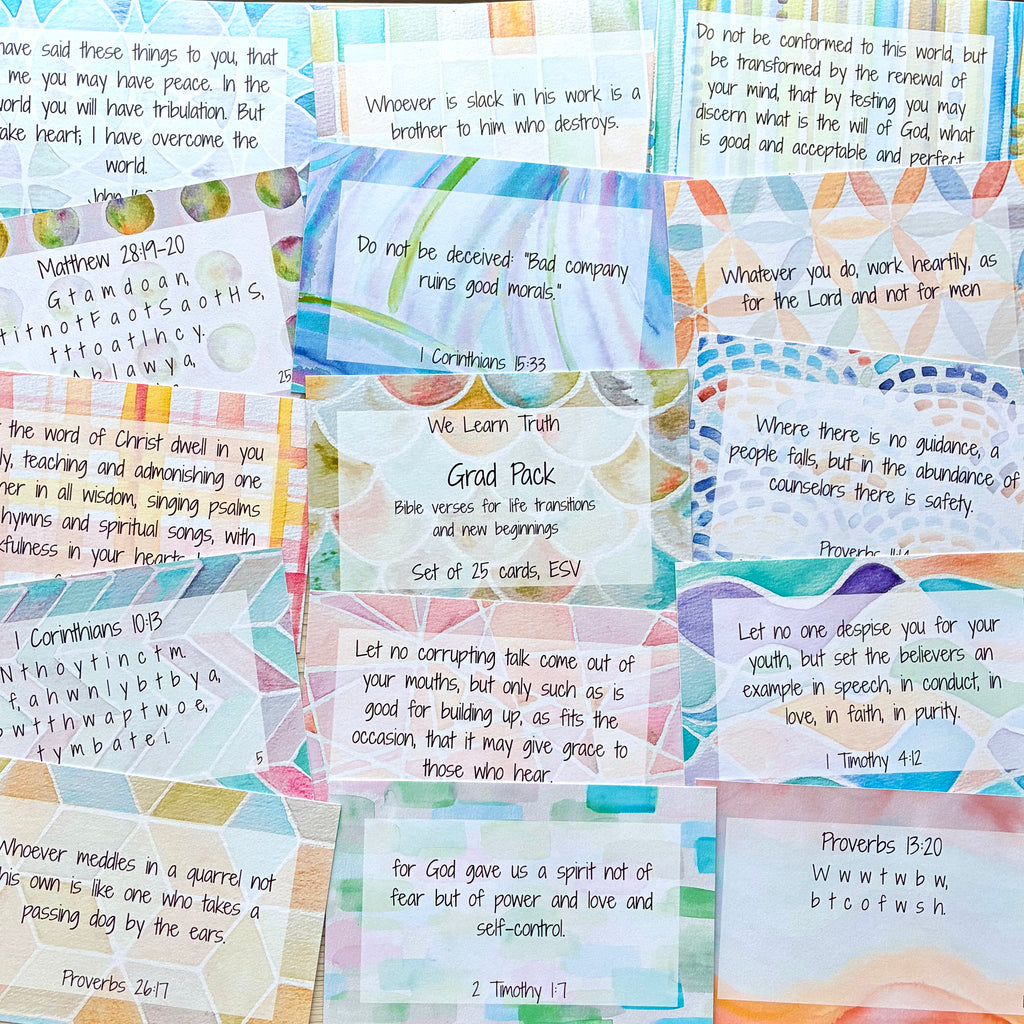 have said these things to you, that
me you may have peace. In the
world you will have tribulation. But
take heart; I have overcome the
world.
Whoever is slack in his work is a
brother to him who destroys.
Do not be conformed to this world, but
be transformed by the renewal of
your mind, that by testing you may
discern what is the will of God, what
is good and acceptable and perfect.
Matthew 28:19-20
G t a m d o a n,
t i t n o t F a o t S a o t H S,
t t t o a t I h c y.
A b l a w y a,
25
Do not be deceived: "Bad company
ruins good morals."
1 Corinthians 15:33
Whatever you do, work heartily, as
for the Lord and not for men
the word of Christ dwell in you
teaching and admonishing one
in all wisdom, singing psalms
hymns and spiritual songs, with
in your hearts
We Learn Truth
Grad Pack
Bible verses for life transitions
and new beginnings
Set of 25 cards, ESV
Where there is no guidance, a
people falls, but in the abundance of
counselors there is safety.
Proverbs 11:14
1 Corinthians 10:13
N t h o y t i n c t m.
f, a h w n l y b t b y a,
b w t t h w a p t w o e,
t y m b a t e i.
5
Let no corrupting talk come out of
your mouths, but only such as is
good for building up, as fits the
occasion, that it may give grace to
those who hear.
Let no one despise you for your
youth, but set the believers an
example in speech, in conduct, in
love, in faith, in purity.
1 Timothy 4:12
Whoever meddles in a quarrel not
his own is like one who takes a
passing dog by the ears.
Proverbs 26:17
for God gave us a spirit not of
fear but of power and love and
self-control.
2 Timothy 1:7
Proverbs 13:20
W w w t w b w,
b t c o f w s h.